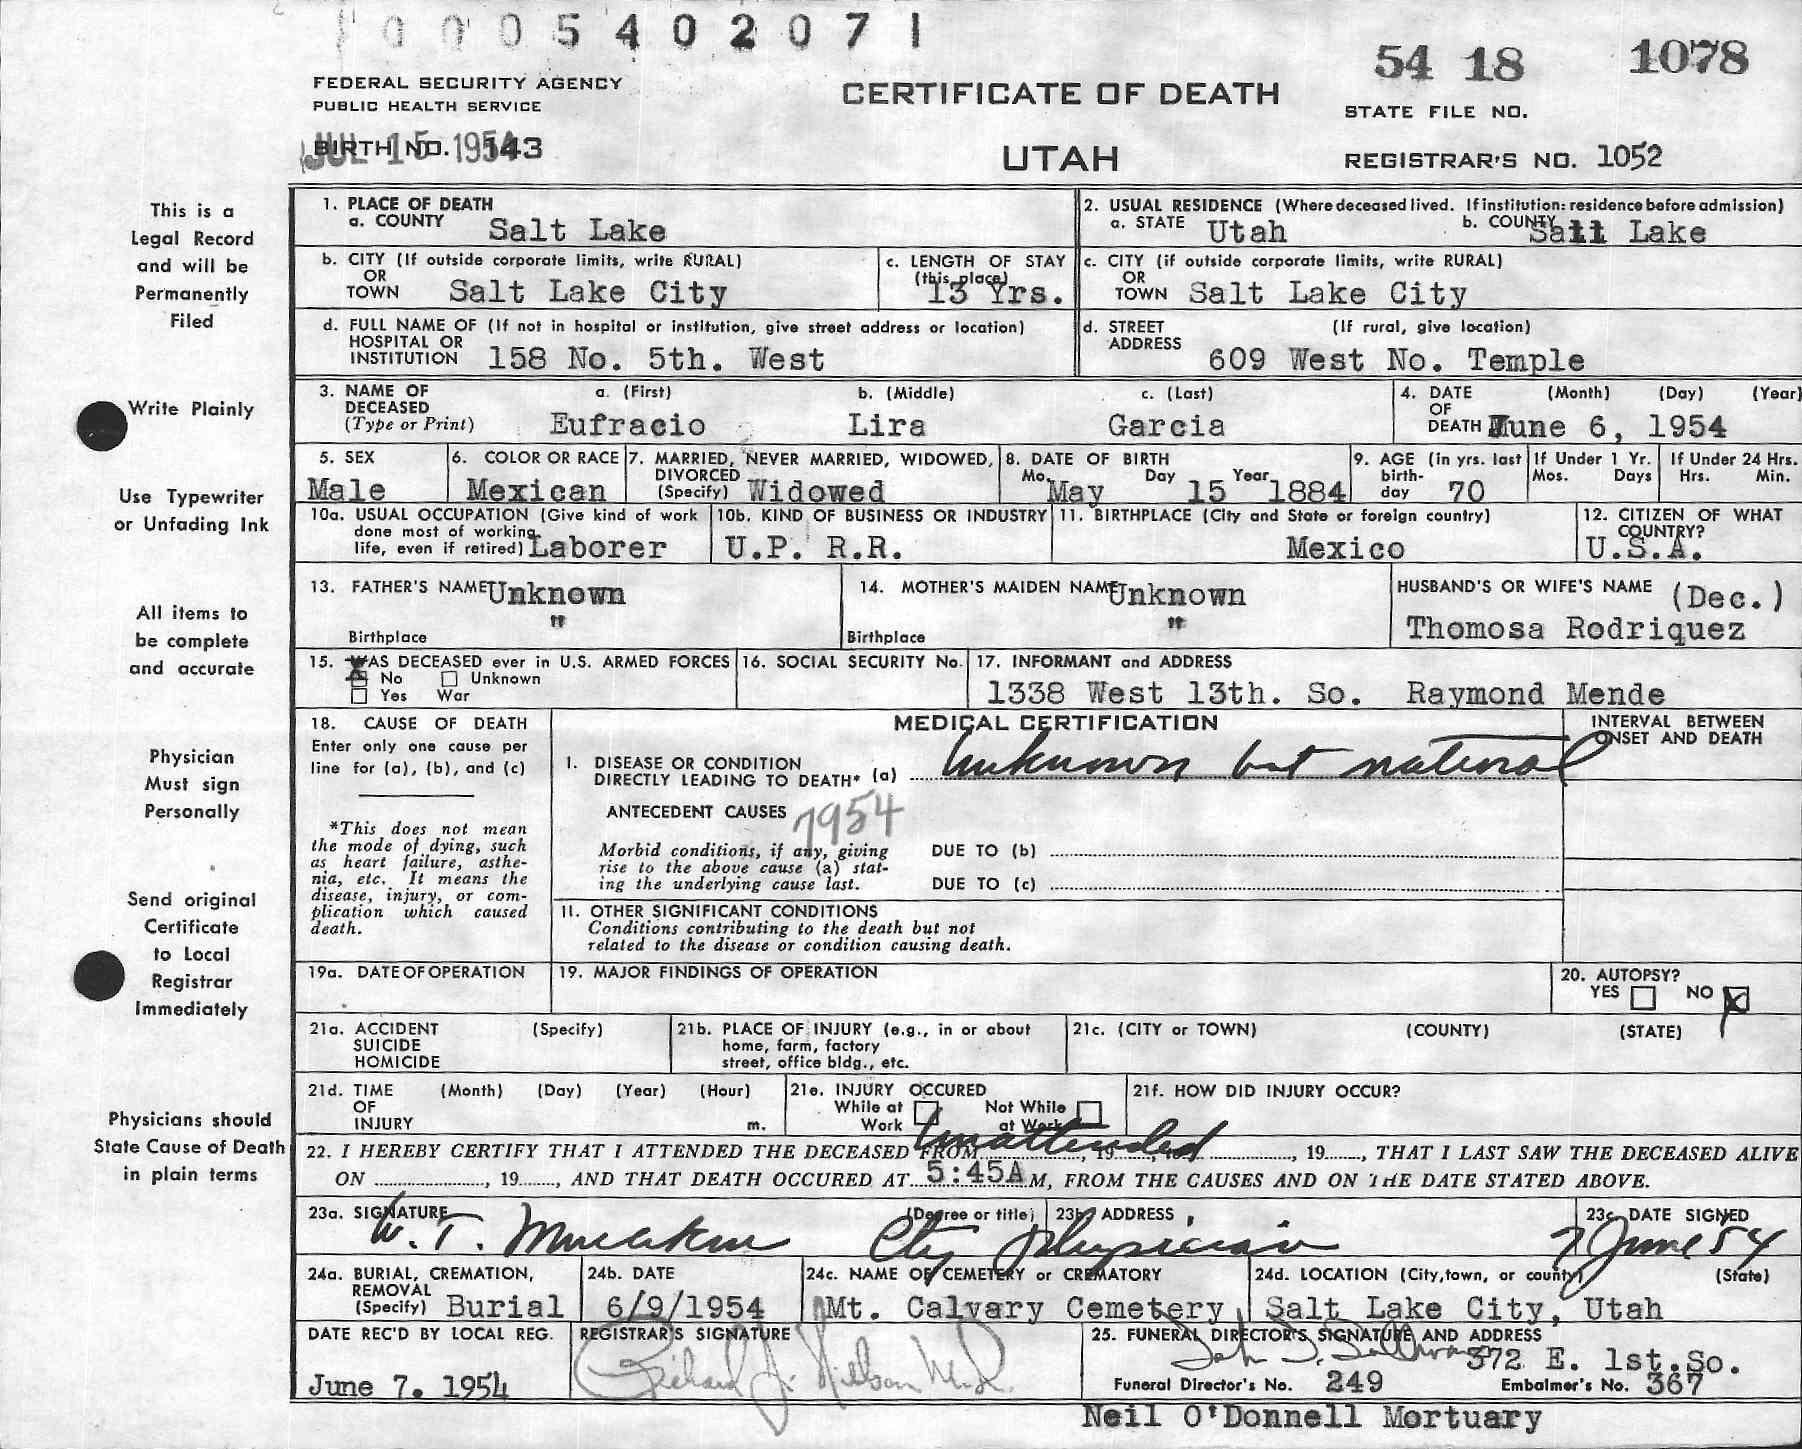 0005402071
54 18 1078
FEDERAL SECURITY AGENCY
PUBLIC HEALTH SERVICE
CERTIFICATE OF DEATH
STATE FILE NO.
BIRTH NO. 143
JUL 15 1954
UTAH
REGISTRAR'S NO. 1052
This is a
Legal Record
and will be
Permanently
Filed
Write Plainly
Use Typewriter
or Unfading Ink
All items to
be complete
and accurate
Physician
Must sign
Personally
Send original
Certificate
to Local
Registrar
Immediately
Physicians should
State Cause of Death
in plain terms
1. PLACE OF DEATH
a. COUNTY Salt Lake
2. USUAL RESIDENCE (Where deceased lived. If institution: residence before admission)
a. STATE Utah b. COUNTY Salt Lake
b. CITY (If outside corporate limits, write RURAL)
OR
TOWN Salt Lake City
c. LENGTH OF STAY
(this place)
13 Yrs.
c. CITY (if outside corporate limits, write RURAL)
OR
TOWN Salt Lake City
d. FULL NAME OF (If not in hospital or institution, give street address or location)
HOSPITAL OR
INSTITUTION 158 No. 5th. West
d. STREET (If rural, give location)
ADDRESS
609 West No. Temple
3. NAME OF a. (First) b. (Middle) c. (Last)
DECEASED
(Type or Print) Eufracio Lira Garcia
4. DATE (Month) (Day) (Year)
OF
DEATH June 6, 1954
5. SEX
Male
6. COLOR OR RACE
Mexican
7. MARRIED, NEVER MARRIED, WIDOWED,
DIVORCED
(Specify) Widowed
8. DATE OF BIRTH
Mo. Day Year
May 15 1884
9. AGE (in yrs. last
birth-
day 70
If Under 1 Yr.
Mos. Days
If Under 24 Hrs.
Hrs. Min.
10a. USUAL OCCUPATION (Give kind of work
done most of working
life, even if retired) Laborer
10b. KIND OF BUSINESS OR INDUSTRY
U.P. R.R.
11. BIRTHPLACE (City and State or foreign country)
Mexico
12. CITIZEN OF WHAT
COUNTRY?
U.S.A.
13. FATHER'S NAME Unknown
Birthplace "
14. MOTHER'S MAIDEN NAME Unknown
Birthplace "
HUSBAND'S OR WIFE'S NAME (Dec.)
Thomosa Rodriquez
15. WAS DECEASED ever in U.S. ARMED FORCES
X No Unknown
Yes War
16. SOCIAL SECURITY No.
17. INFORMANT and ADDRESS
1338 West 13th. So. Raymond Mende
18. CAUSE OF DEATH
Enter only one cause per
line for (a), (b), and (c)
*This does not mean
the mode of dying, such
as heart failure, asthe-
nia, etc. It means the
disease, injury, or com-
plication which caused
death.
MEDICAL CERTIFICATION
INTERVAL BETWEEN
ONSET AND DEATH
I. DISEASE OR CONDITION
DIRECTLY LEADING TO DEATH* (a) Unknown but natural
ANTECEDENT CAUSES
7954
Morbid conditions, if any, giving
rise to the above cause (a) stat-
ing the underlying cause last.
DUE TO (b)
DUE TO (c)
II. OTHER SIGNIFICANT CONDITIONS
Conditions contributing to the death but not
related to the disease or condition causing death.
19a. DATE OF OPERATION
19. MAJOR FINDINGS OF OPERATION
20. AUTOPSY?
YES NO X
21a. ACCIDENT (Specify)
SUICIDE
HOMICIDE
21b. PLACE OF INJURY (e.g., in or about
home, farm, factory
street, office bldg., etc.
21c. (CITY or TOWN) (COUNTY) (STATE)
21d. TIME (Month) (Day) (Year) (Hour)
OF
INJURY m.
21e. INJURY OCCURED
While at Work Not While at Work
21f. HOW DID INJURY OCCUR?
Unattended
22. I HEREBY CERTIFY THAT I ATTENDED THE DECEASED FROM , 19 , to , 19 , THAT I LAST SAW THE DECEASED ALIVE
ON , 19 , AND THAT DEATH OCCURED AT 5:45A M, FROM THE CAUSES AND ON THE DATE STATED ABOVE.
23a. SIGNATURE (Degree or title) 23b. ADDRESS 23c. DATE SIGNED
W. T. City Physician 7 June 54
24a. BURIAL, CREMATION,
REMOVAL
(Specify) Burial
24b. DATE
6/9/1954
24c. NAME OF CEMETERY or CREMATORY
Mt. Calvary Cemetery
24d. LOCATION (City, town, or county) (State)
Salt Lake City, Utah
DATE REC'D BY LOCAL REG.
June 7. 1954
REGISTRAR'S SIGNATURE
Richard J. Nilson M.D.
25. FUNERAL DIRECTOR'S SIGNATURE AND ADDRESS
372 E. 1st. So.
Funeral Director's No. 249 Embalmer's No. 367
Neil O'Donnell Mortuary